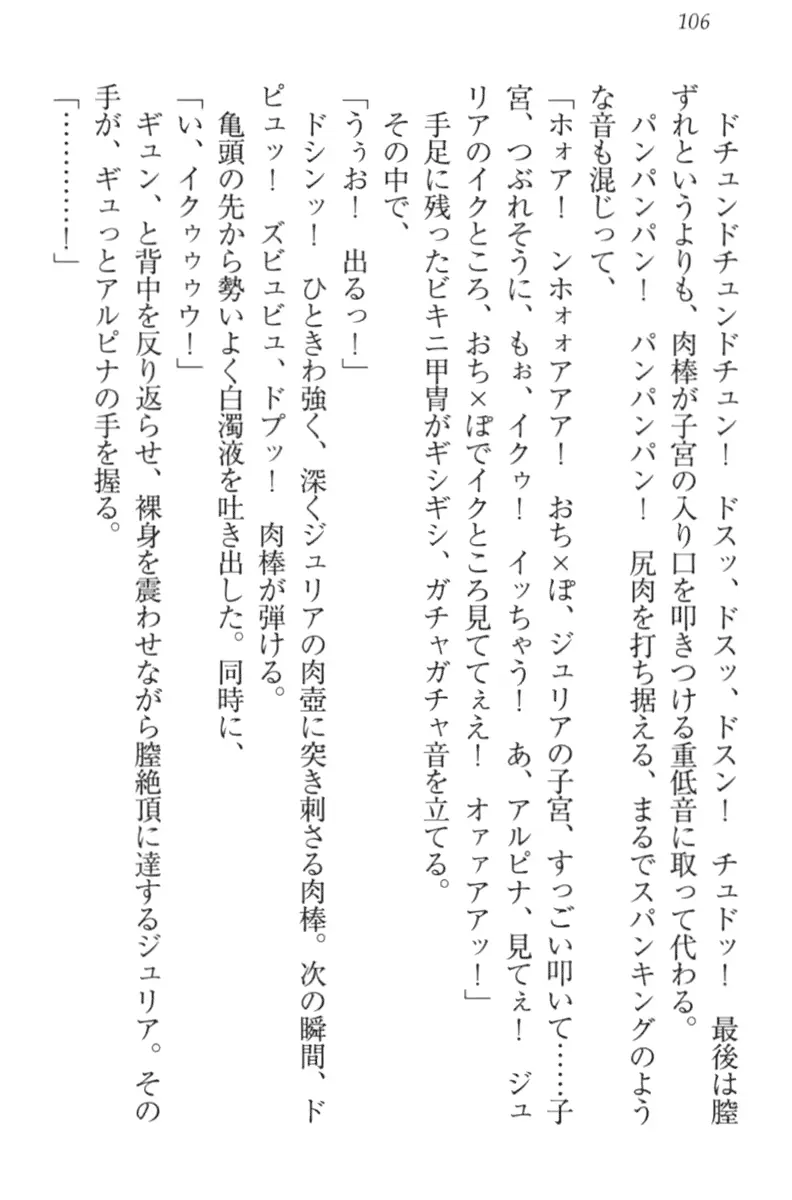 106
　ドチュンドチュンドチュン！　ドスッ、ドスッ、ドスン！　チュドッ！　最後は膣
ずれというよりも、肉棒が子宮の入り口を叩きつける重低音に取って代わる。
　パンパンパン！　パンパンパン！　尻肉を打ち据える、まるでスパンキングのよう
な音も混じって、
「ホォア！　ンホォォアアア！　おち×ぽ、ジュリアの子宮、すっごい叩いて……子
宮、つぶれそうに、もぉ、イクゥ！　イッちゃう！　あ、アルピナ、見てぇ！　ジュ
リアのイクところ、おち×ぽでイクところ見ててぇえ！　オァァアアッ！」
　手足に残ったビキニ甲冑がギシギシ、ガチャガチャ音を立てる。
　その中で、
「うぅお！　出るっ！」
　ドシンッ！　ひときわ強く、深くジュリアの肉壺に突き刺さる肉棒。次の瞬間、ド
ピュッ！　ズビュビュ、ドプッ！　肉棒が弾ける。
　亀頭の先から勢いよく白濁液を吐き出した。同時に、
「い、イクゥゥゥウ！」
　ギュン、と背中を反り返らせ、裸身を震わせながら膣絶頂に達するジュリア。その
手が、ギュっとアルピナの手を握る。
「…………！」